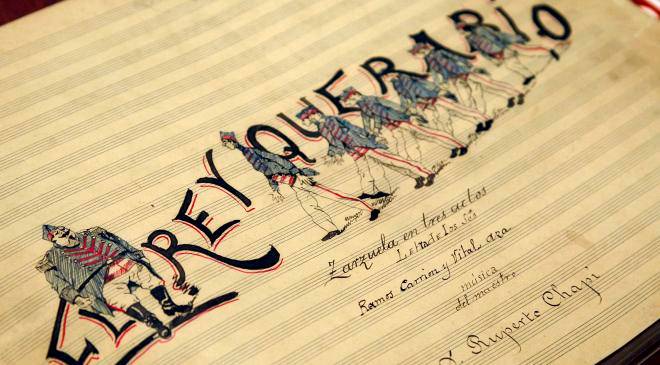 EL REY QUE RABIO
Zarzuela en tres actos
Letra de los Srs
Ramos Carrion y Vital Aza
música
del maestro
D. Ruperto Chapi